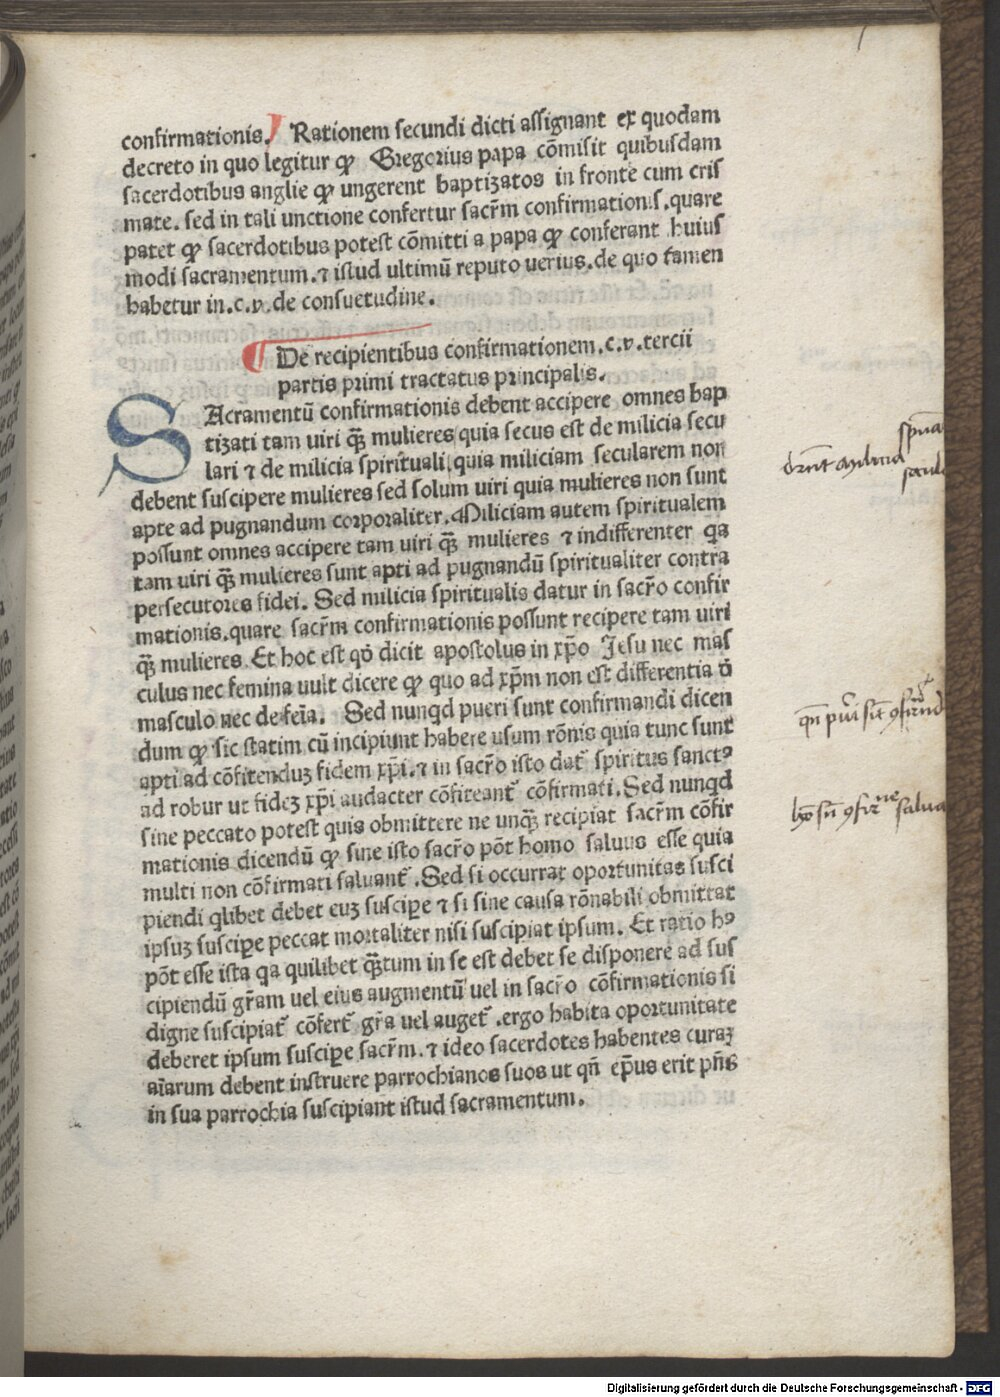 confirmationis. Rationem secundi dicti assignant ex quodam
decreto in quo legitur ꝙ Gregorius papa cōmisit quibusdam
sacerdotibus anglie ꝙ ungerent baptizatos in fronte cum cris
mate. sed in tali unctione confertur sacr̄m confirmationis. quare
patet ꝙ sacerdotibus potest cōmitti a papa ꝙ conferant huius
modi sacramentum. ⁊ istud ultimū reputo verius. de quo tamen
habetur in. c. v. de consuetudine.
De recipientibus confirmationem. c. v. tercii
partis primi tractatus principalis.
SAcramentū confirmationis debent accipere omnes bap
tizati tam uiri qꝫ̄ mulieres quia secus est de milicia secu
lari ⁊ de milicia spirituali, quia miliciam secularem non
debent suscipere mulieres sed solum uiri quia mulieres non sunt
apte ad pugnandum corporaliter. Miliciam autem spiritualem
possunt omnes accipere tam uiri qꝫ̄ mulieres ⁊ indifferenter qa
tam uiri qꝫ̄ mulieres sunt apti ad pugnandū spiritualiter contra
persecutores fidei. Sed milicia spiritualis datur in sacr̄o confir
mationis. quare sacr̄m confirmationis possunt recipere tam uiri
qꝫ̄ mulieres. Et hoc est qd̄ dicit apostolus in xp̄o Jesu nec mas
culus nec femina uult dicere ꝙ quo ad xp̄m non est differentia d̄
masculo nec de fēia. Sed nunqd pueri sunt confirmandi dicen
dum ꝙ sic statim cū incipiunt habere usum rōnis quia tunc sunt
apti ad cōfitenduꝫ fidem xp̄i. ⁊ in sacr̄o isto dat᷑ spiritus sanctꝰ
ad robur ut fideꝫ xp̄i audacter cōfiteant᷑ cōfirmati. Sed nunqd
sine peccato potest quis obmittere ne unqꝫ̄ recipiat sacr̄m cōfir
mationis dicendū ꝙ sine isto sacr̄o pōt homo saluus esse quia
multi non cōfirmati saluant᷑. Sed si occurrat oportunitas susci
piendi qlibet debet euꝫ suscipe ⁊ si sine causa rōnabili obmittat
ipsuꝫ suscipe peccat mortaliter nisi suscipiat ipsum. Et ratio hꝰ
pōt esse ista qa quilibet qꝫ̄tum in se est debet se disponere ad sus
cipiendū gr̄am uel eius augmentū uel in sacr̄o cōfirmationis si
digne suscipiat᷑ cōfert᷑ gr̄a uel auget᷑. ergo habita oportunitate
deberet ipsum suscipe sacr̄m. ⁊ ideo sacerdotes habentes curaꝫ
aīarum debent instruere parrochianos suos ut qn̄ ep̄us erit pn̄s
in sua parrochia suscipiant istud sacramentum.